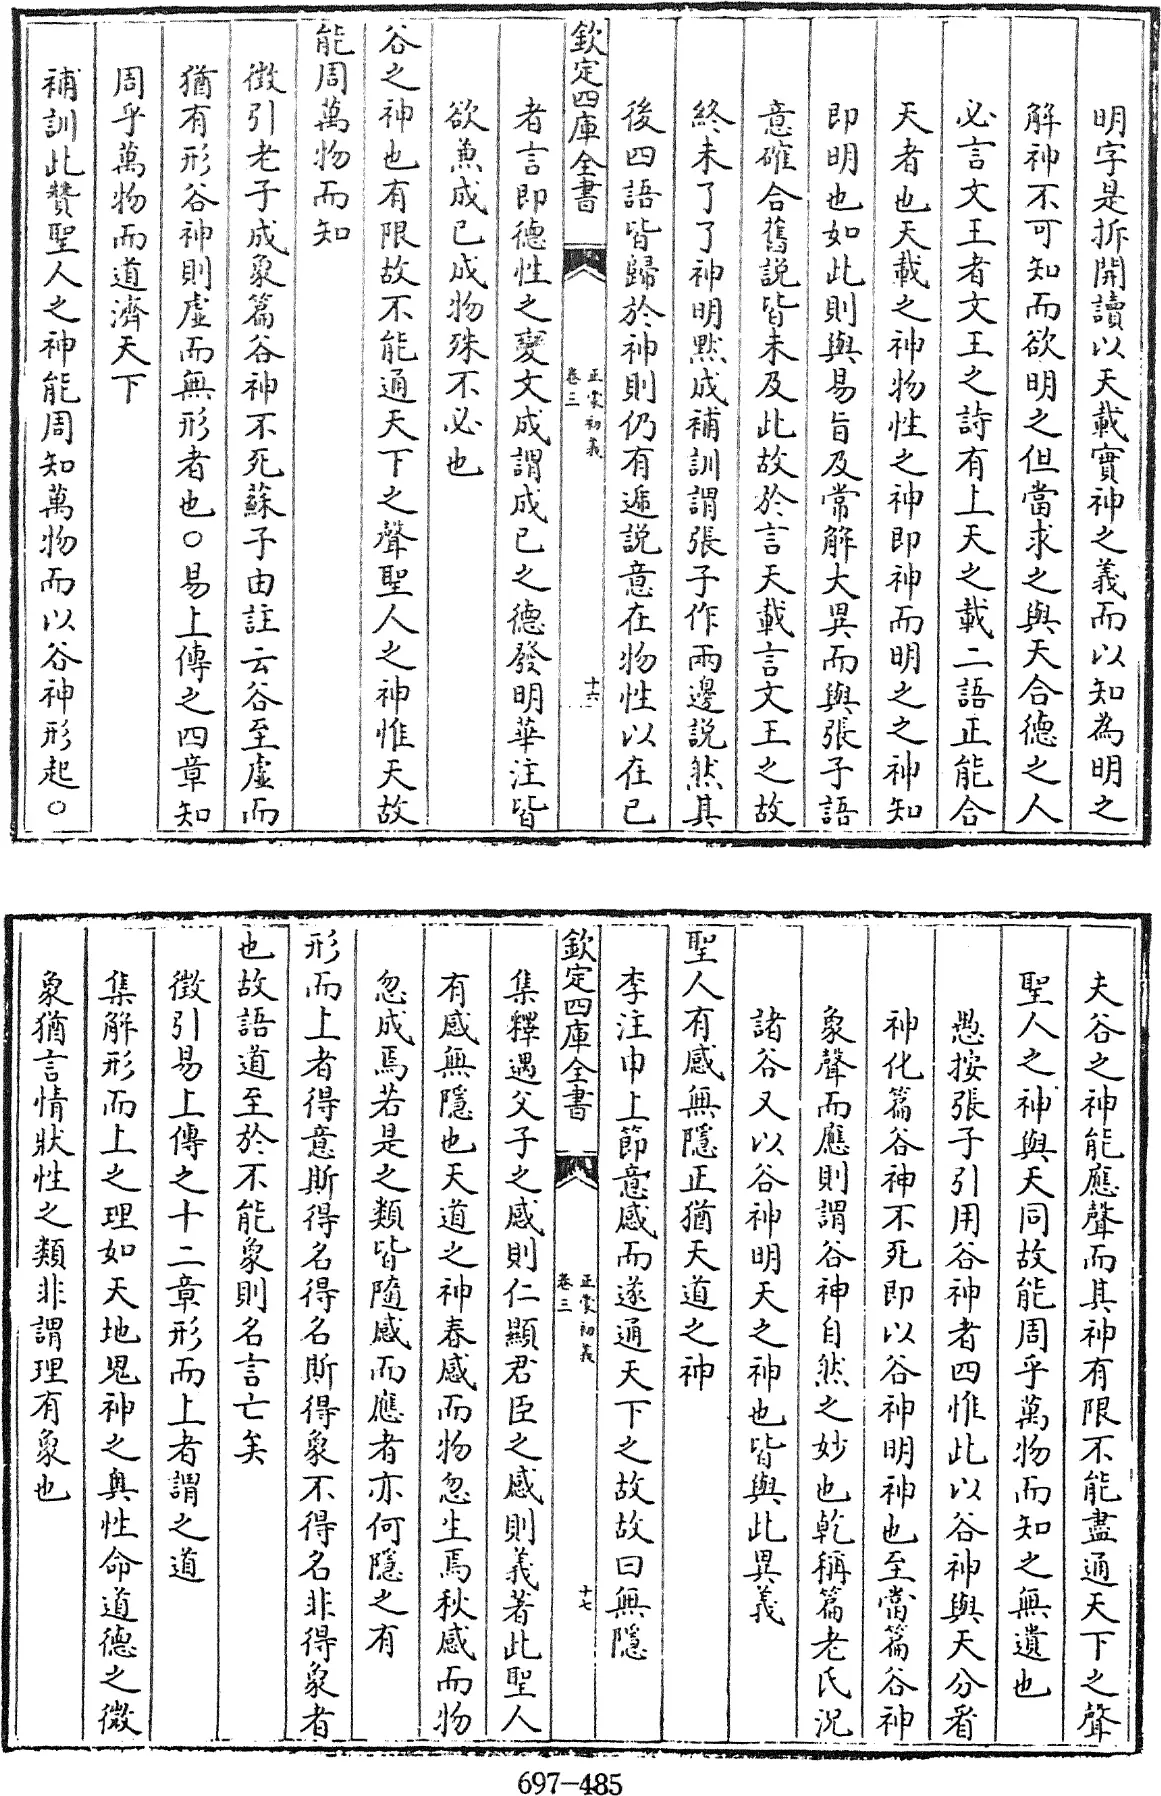 明字是拆開讀以天載實神之義而以知為明之
解神不可知而欲明之但當求之與天合德之人
必言文王者文王之詩有上天之載二語正能合
天者也天載之神物性之神即神而明之之神知
即明也如此則與易旨及常解大異而與張子語
意確合舊説皆未及此故於言天載言文王之故
終未了了神明黙成補訓謂張子作兩邊説然其
後四語皆歸於神則仍有遞説意在物性以在已
欽定四庫全書
正蒙初義
卷三
十六
者言即德性之變文成謂成已之德發明華注皆
欲兼成已成物殊不必也
谷之神也有限故不能通天下之聲聖人之神惟天故
能周萬物而知
徴引老子成象篇谷神不死蘇子由註云谷至虚而
猶有形谷神則虚而無形者也○易上傳之四章知
周乎萬物而道濟天下
補訓此贊聖人之神能周知萬物而以谷神形起○
夫谷之神能應聲而其神有限不能盡通天下之聲
聖人之神與天同故能周乎萬物而知之無遺也
愚按張子引用谷神者四惟此以谷神與天分看
神化篇谷神不死即以谷神明神也至當篇谷神
象聲而應則謂谷神自然之妙也乾稱篇老氏況
諸谷又以谷神明天之神也皆與此異義
聖人有感無隱正猶天道之神
李注申上節意感而遂通天下之故故曰無隱
欽定四庫全書
正蒙初義
卷三
十七
集釋遇父子之感則仁顯君臣之感則義著此聖人
有感無隱也天道之神春感而物忽生焉秋感而物
忽成焉若是之類皆隨感而應者亦何隱之有
形而上者得意斯得名得名斯得象不得名非得象者
也故語道至於不能象則名言亡矣
徴引易上傳之十二章形而上者謂之道
集解形而上之理如天地鬼神之奧性命道德之微
象猶言情狀性之類非謂理有象也
697-485